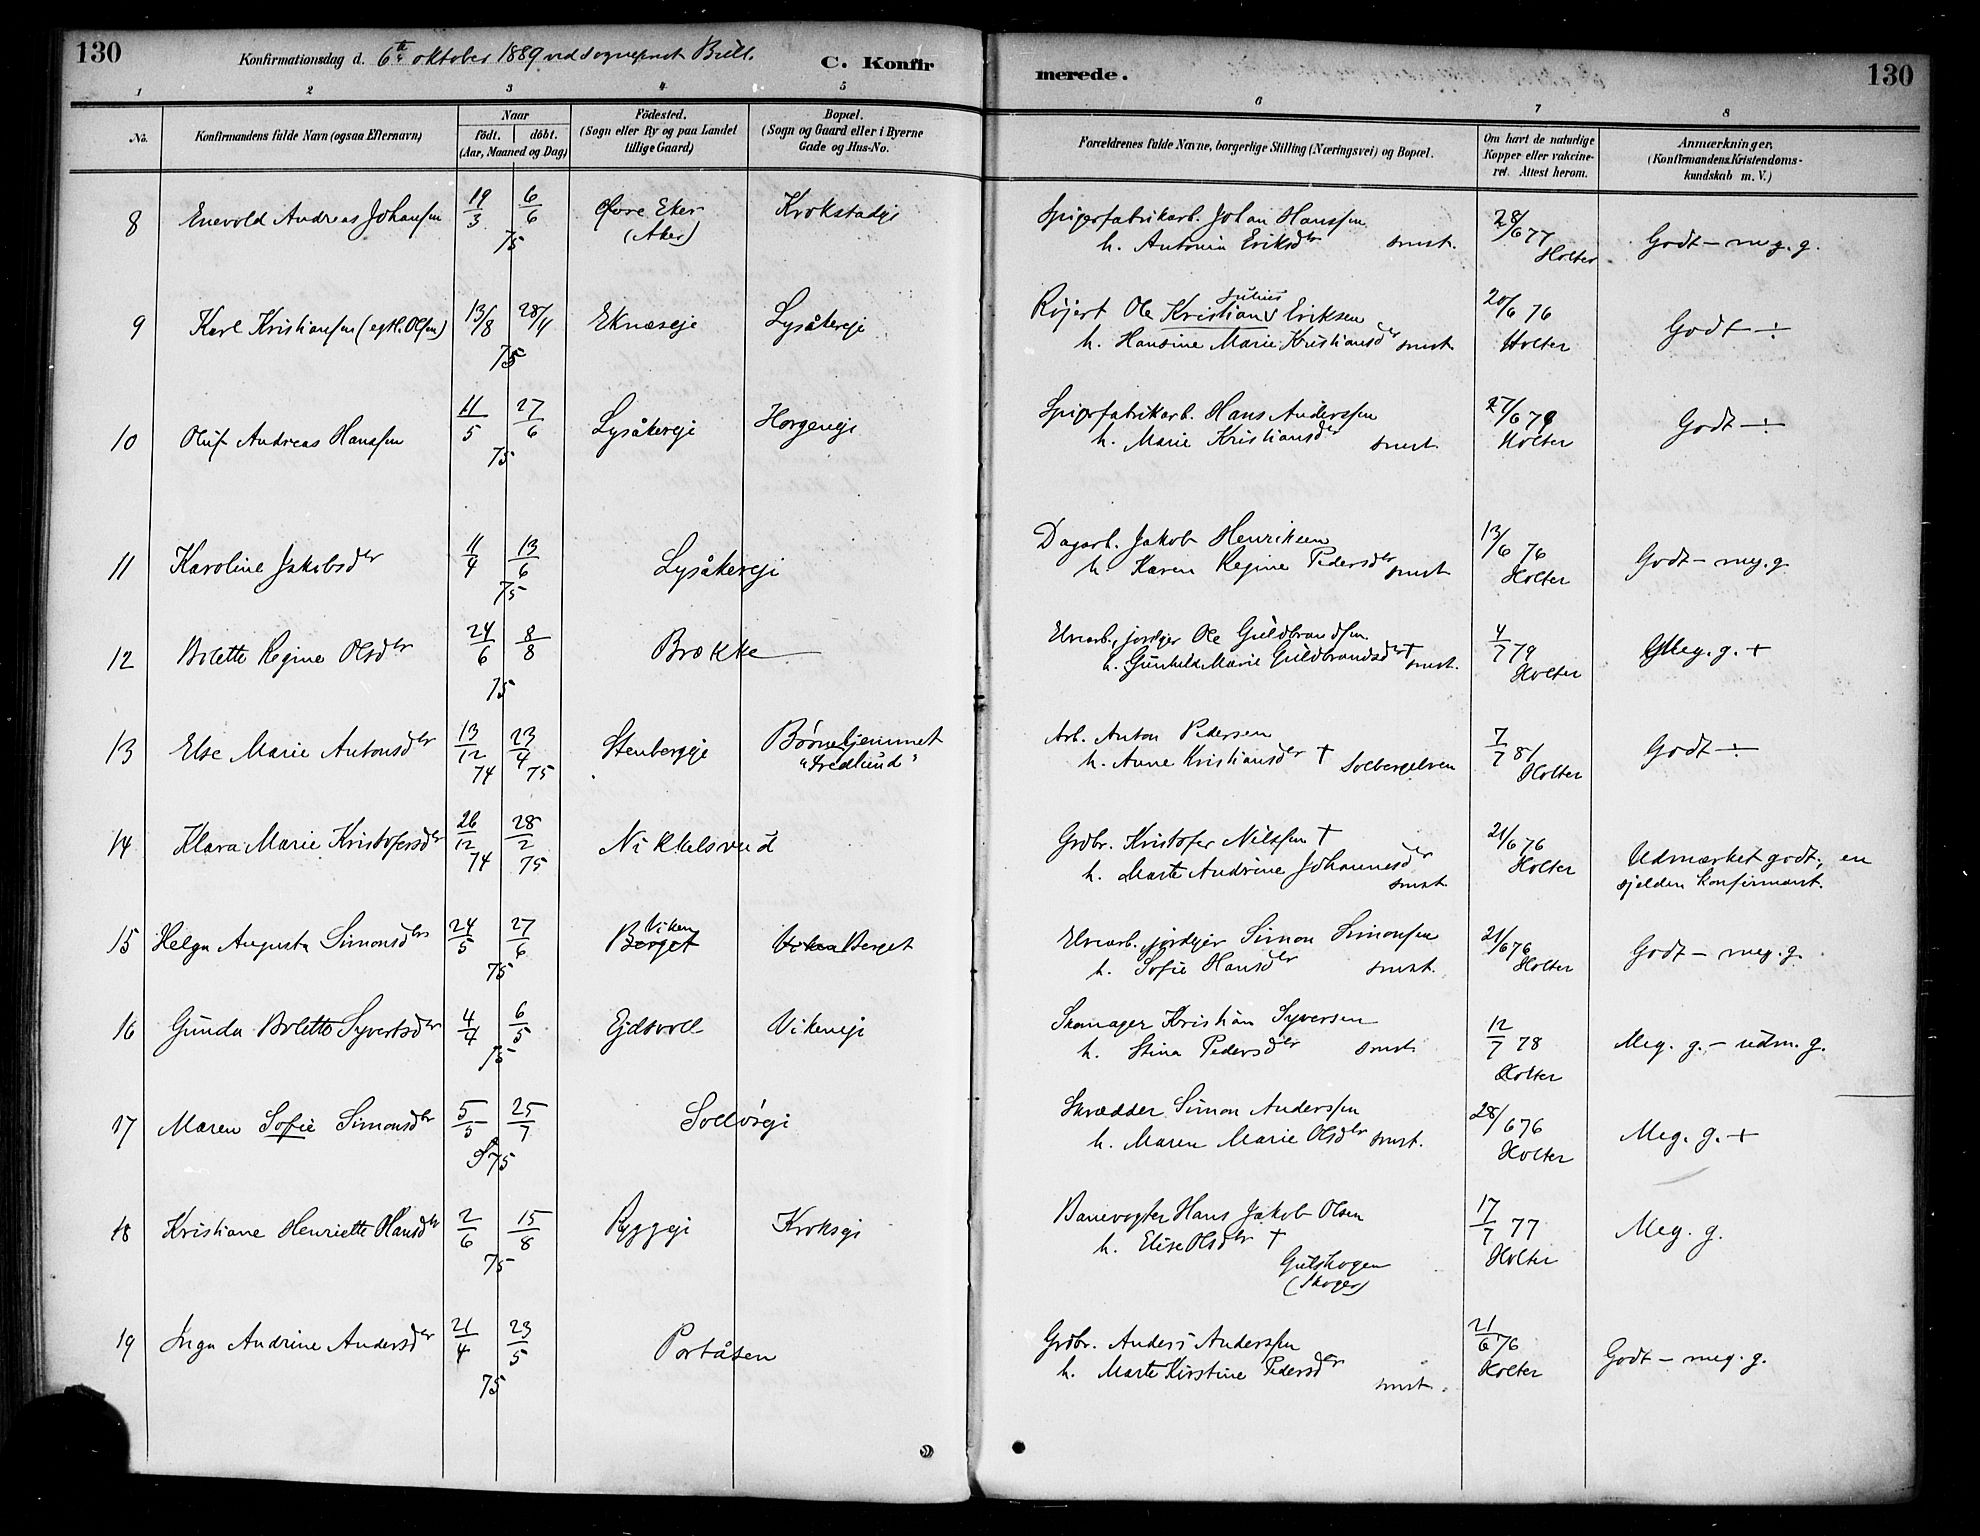 130
Konfirmationsdag d. 6te oktober 1889 ved sogneprest Bull.
C. Konfirmerede.
130
1 2 3 4 5 6 7 8
No.
Konfirmandens fulde Navn (ogsaa Efternavn)
Naar
födt. döbt.
(Aar, Maaned og Dag)
Födested.
(Sogn eller By og paa Landet
tillige Gaard)
Bopæl.
(Sogn og Gaard eller i Byerne
Gade og Hus-No.
Forældrenes fulde Navne, borgerlige Stilling (Næringsvei) og Bopæl.
Om havt de naturlige
Kopper eller vakcine-
ret. Attest herom.
Anmærkninger,
(Konfirmandens Kristendoms-
kundskab m. V.)
8 Enevold Andreas Johansen 19/3 6/6 75 Øvre Eker (Aker) Krokstadej
Spigerfabrikarb. Johan Hanssen
h. Antonia Eriksdtr smst. 28/6 77 Holter Godt – meg. g.
9 Karl Kristiansen (egtl. Olsen) 13/8 28/11 75 Eknæseje Lysåkereje
Röjert Ole Kristian Julius Eriksen
h. Hansine Marie Kristiansdtr smst. 20/6 76 Holter Godt ÷
10 Oluf Andreas Hanssen 11/5 27/6 75 Lysåkereje Horgenejé
Spigerfabrikarb. Hans Anderssen
h. Marie Kristiansdtr smst. 27/6 79 Holter Godt ÷
11 Karoline Jakobsdtr 11/4 13/6 75 Lysåkereje
Dagarb. Jakob Henriksen
h. Karen Regine Pedersdtr smst 13/6 76 Holter Godt – meg. g
12 Bolette Regine Olsdtr 24/6 8/8 75 Brække
Elvearb., jordejer Ole Guldbrandsen
h. Gunhild Marie Guldbrandsdtr † smst. 4/7 79 Holter Meg. g. +
13 Else Marie Antonsdtr 13/12 74 23/4 75 Stenbergeje Børnehjemmet "Fredlund"
Arb. Anton Pedersen
h. Anne Kristiansdtr † Solbergelven 7/7 81 Holter Godt ÷
14 Klara Marie Kristofersdtr 26/12 74 28/2 75 Nikkelsrud
Grdbr. Kristofer Nilssen †
h. Marte Andrine Johannesdtr smst. 21/6 76 Holter Udmærket godt; en
sjelden konfirmant.
15 Helga Augusta Simonsdtr 24/5 27/6 75 Berget Viken Viken Berget
Elvearb., jordejer Simon Simonsen
h. Sofie Hansdtr smst. 21/6 76 Holter Godt – meg. g.
16 Gunda Bolette Syvertsdtr 4/4 6/5 75 Ejdsvoll Vikeneje
Skomager Kristian Syversen
h. Stina Pedersdtr smst. 12/7 78 Holter Meg. g. – udm. g.
17 Maren Sofie Simonsdtr 5/5 25/7 75 Sollöseje
Skrædder Simon Anderssen
h. Maren Marie Olsdtr smst. 28/6 76 Holter Meg. g. +
18 Kristiane Henriette Hansdtr 2/6 15/8 75 Ryggeje Kroksejé
Banevogter Hans Jakob Olsen
h. Elise Olsdtr †
Gulskogen
(Skoger) 17/7 77 Holter Meg. g.
19 Inga Andrine Andersdtr 21/4 23/5 75 Portåsen
Grdbr. Anders Anderssen
h. Marte Kirstine Pedersdtr smst. 21/6 76 Holter Godt – meg. g.